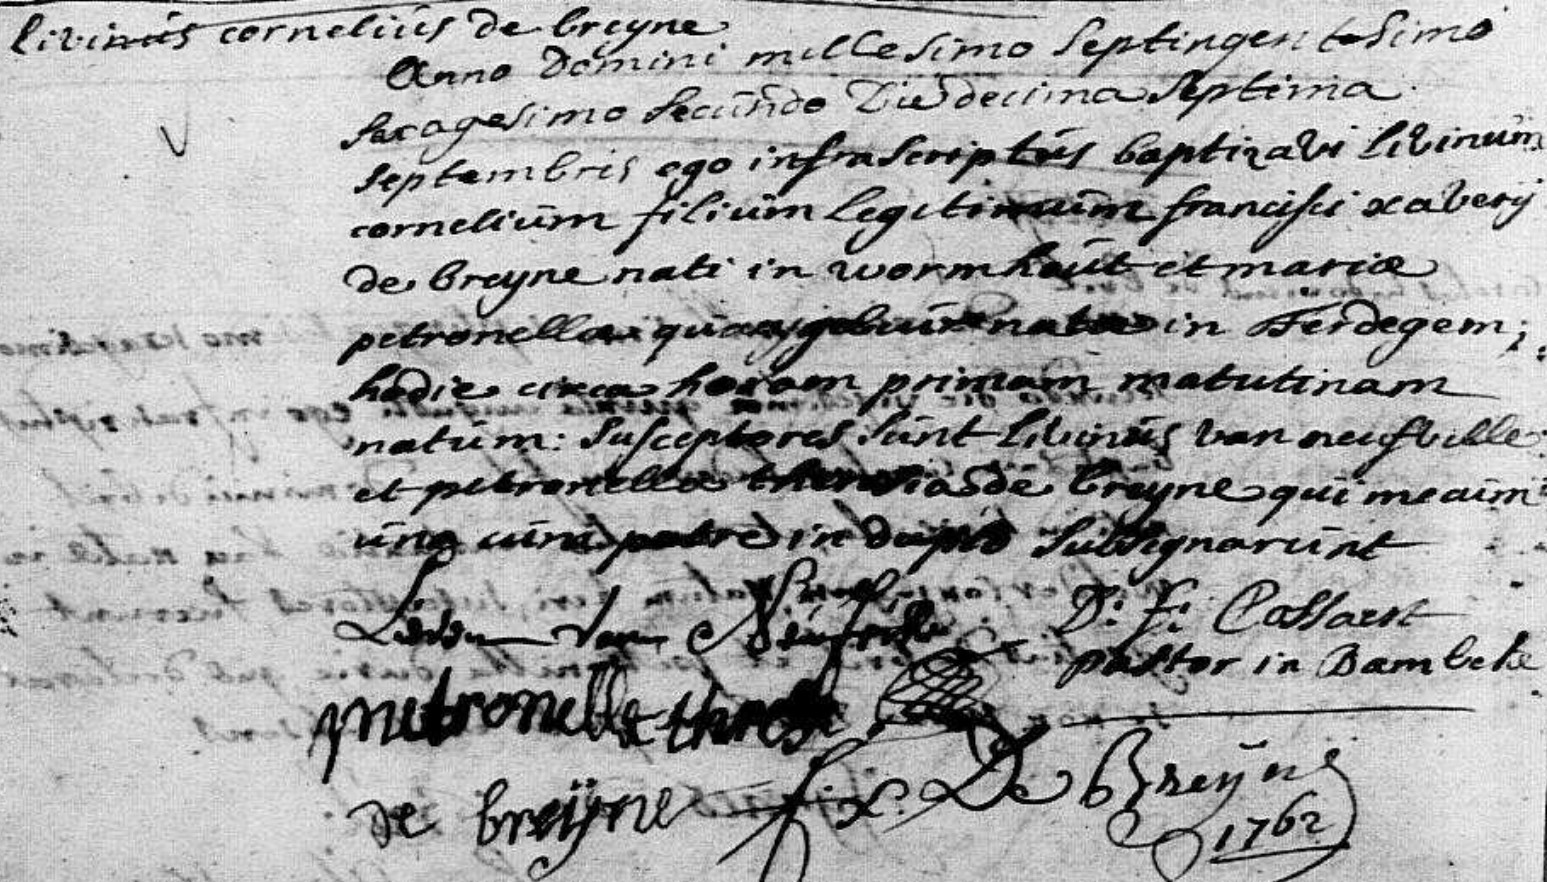 livinus cornelius de breyne
Anno Domini millesimo septingentesimo
sexagesimo secundo Die decima septima
septembris ego infrascriptus baptizavi livinum
cornelium filium legitimum francisci xaverij
de breyne nati in wormhout et mariæ
petronellæ natæ in Terdegem;
hodie circa horam primam matutinam
natum: susceptores sunt livinus van neufville
et petronella theresia de breyne qui mecum
una cum patre in duplo subsignarunt
Lieven van Neufville
D: F: Cossaert
pastor in Bambeke
petronelle therese
de breÿne
f: x: De Breÿne
1762